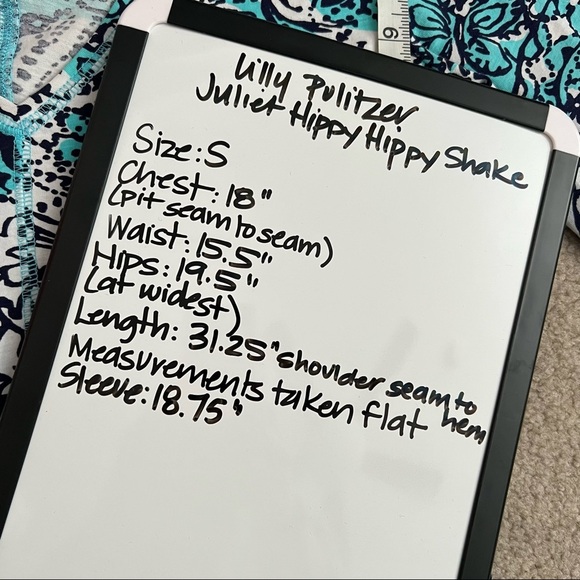 9
Lilly Pulitzer
Juliet Hippy Hippy Shake
Size: S
Chest: 18"
(pit seam to seam)
Waist: 15.5"
Hips: 19.5"
(at widest)
Length: 31.25" shoulder seam to hem
Measurements taken flat
Sleeve: 18.75"